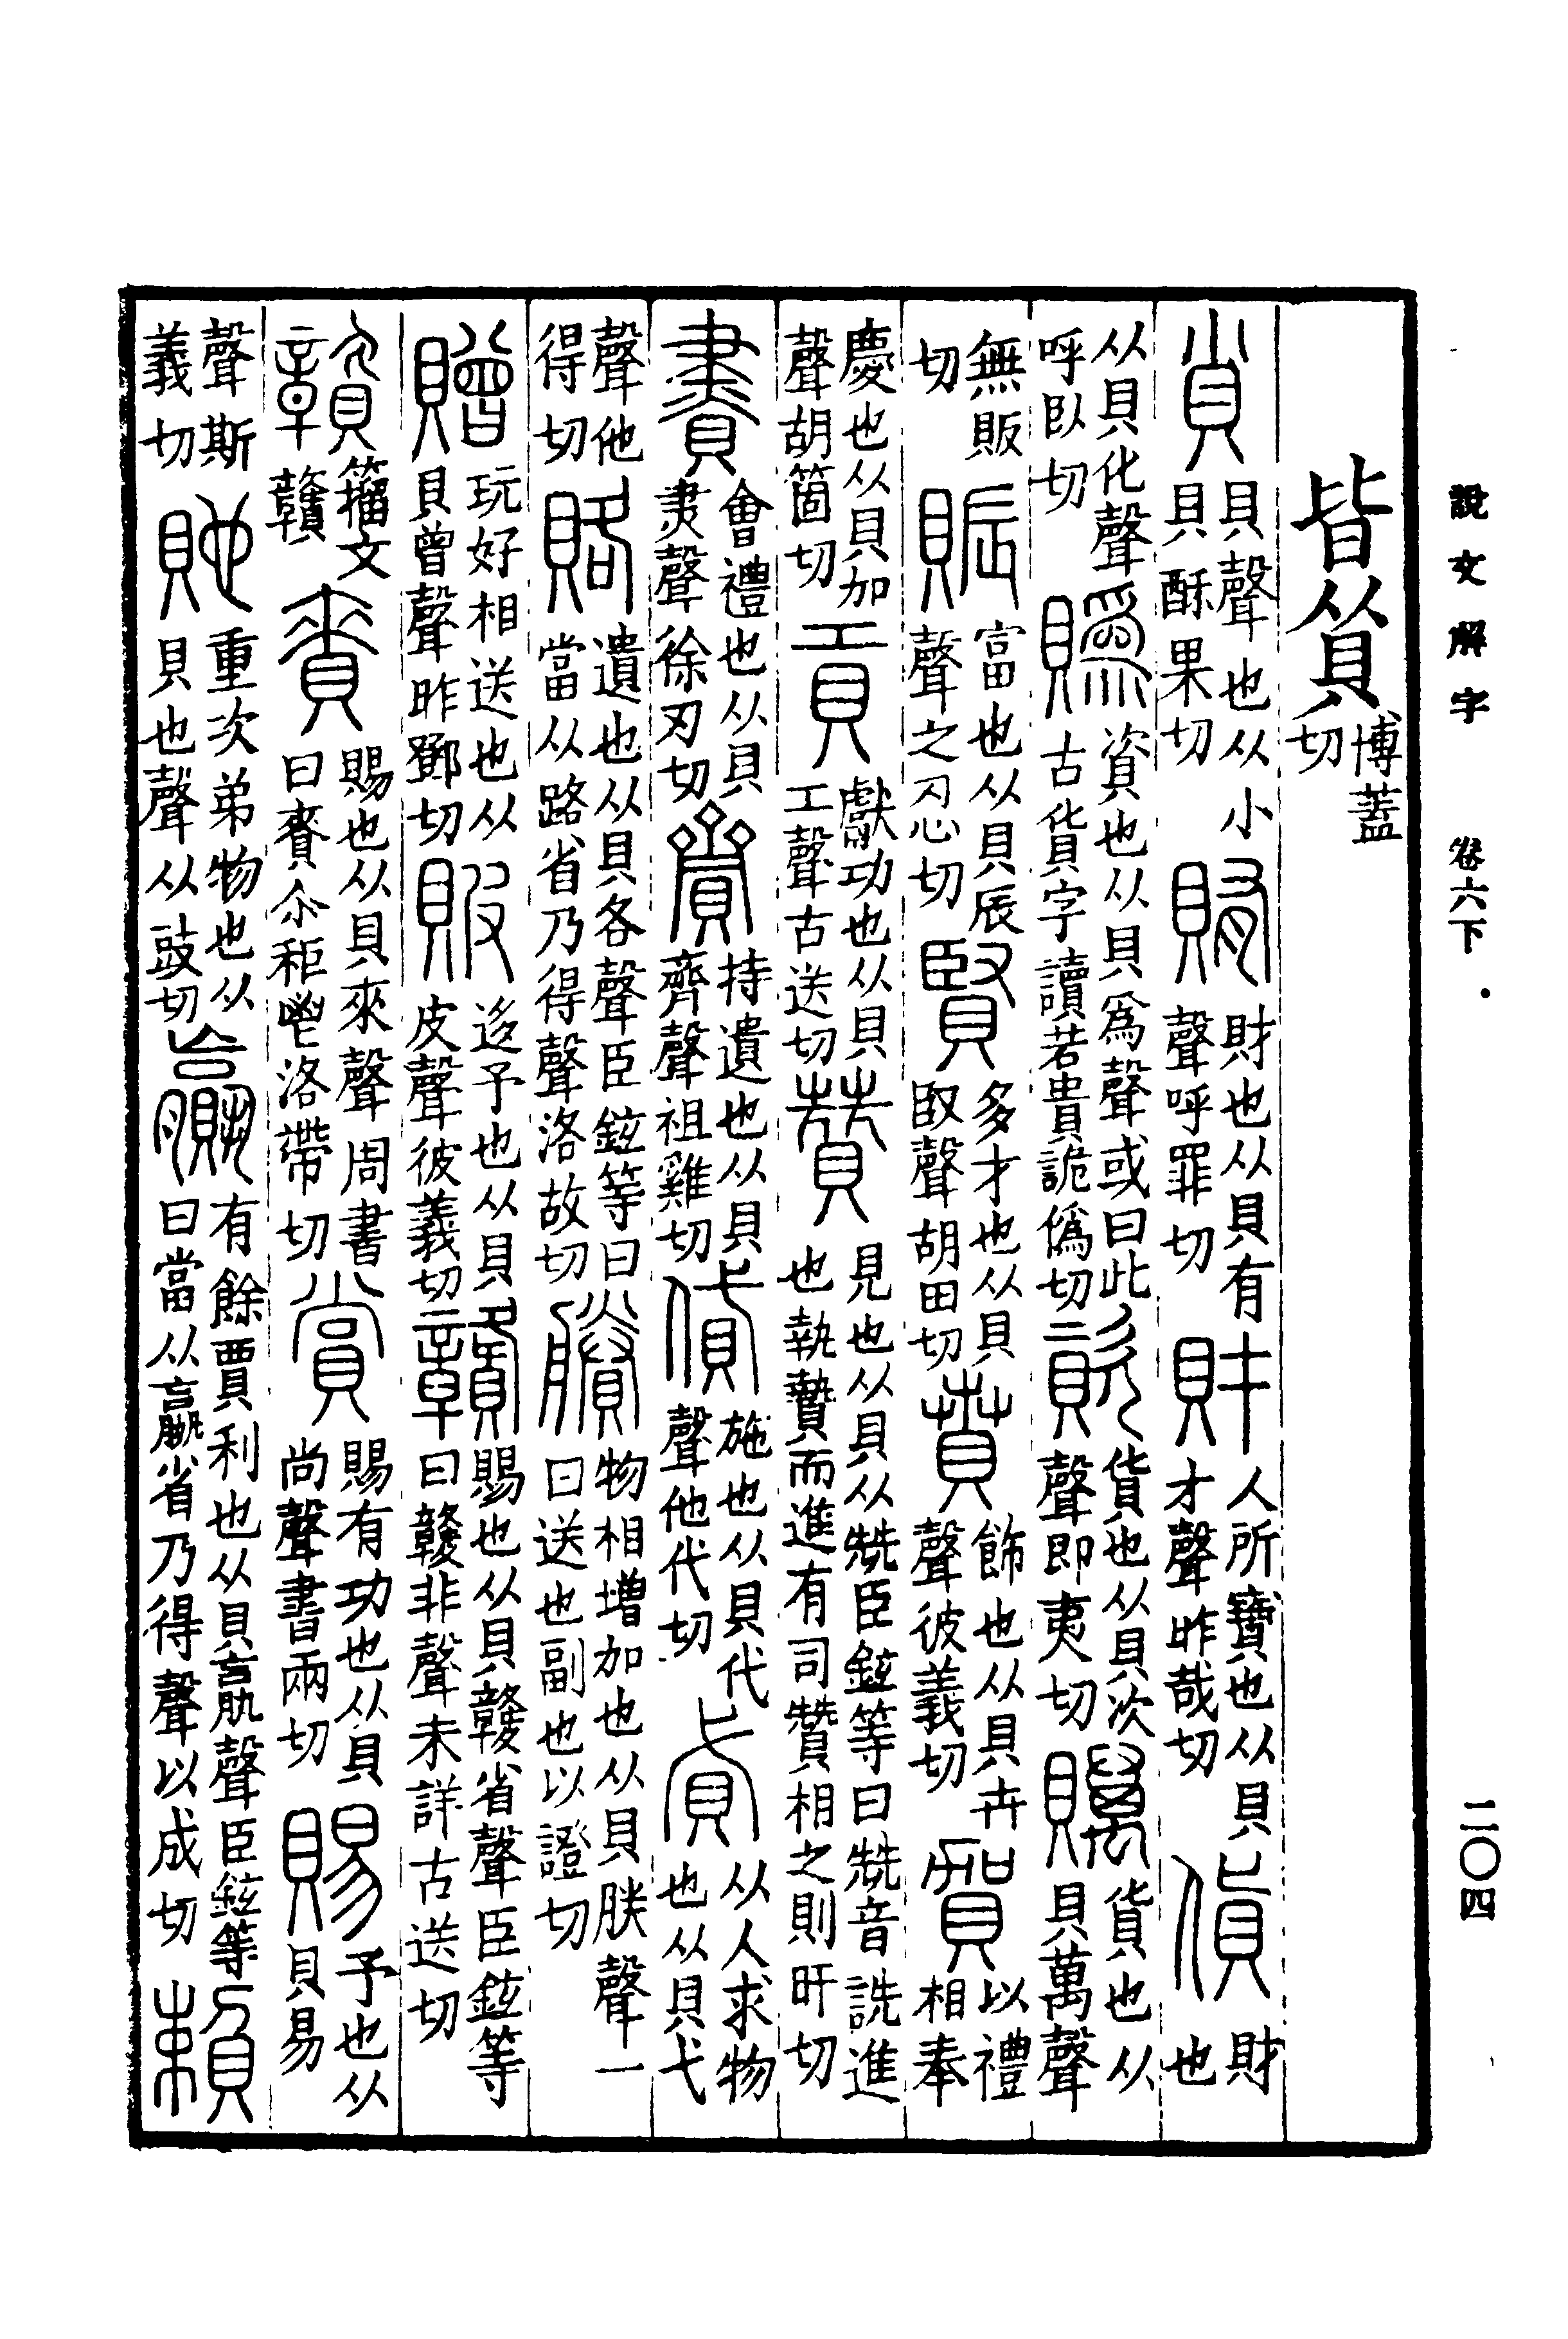 說文解字　卷六下
二〇四
皆从貝博蓋切
𧴪貝聲也从小貝酥果切賄財也从貝有聲呼罪切財人所寶也从貝才聲昨哉切貨財也
从貝化聲呼臥切䞈資也从貝爲聲或曰此古貨字讀若貴詭僞切資貨也从貝次聲即夷切贎貨也从貝萬聲
無販切賑富也从貝辰聲之忍切賢多才也从貝臤聲胡田切賁飾也从貝卉聲彼義切賀以禮相奉
慶也从貝加聲胡箇切貢獻功也从貝工聲古送切贊見也从貝从兟臣鉉等曰兟音詵進也執贄而進有司贊相之則旰切
賮會禮也从貝㶳聲徐刃切齎持遺也从貝齊聲祖雞切貸施也从貝代聲他代切貣从人求物也从貝弋
聲他得切賂遺也从貝各聲臣鉉等曰當从路省乃得聲洛故切賸物相增加也从貝朕聲一曰送也副也以證切
贈玩好相送也从貝曾聲昨鄧切貱迻予也从貝皮聲彼義切贛賜也从貝竷省聲臣鉉等曰竷非聲未詳古送切
籀文贛賚賜也从貝來聲周書曰賚尒秬鬯洛帶切賞賜有功也从貝尚聲書兩切賜予也从貝易
聲斯義切貤重次弟物也从貝也聲从豉切贏有餘賈利也从貝𣎆聲臣鉉等曰當从嬴省乃得聲以成切賴